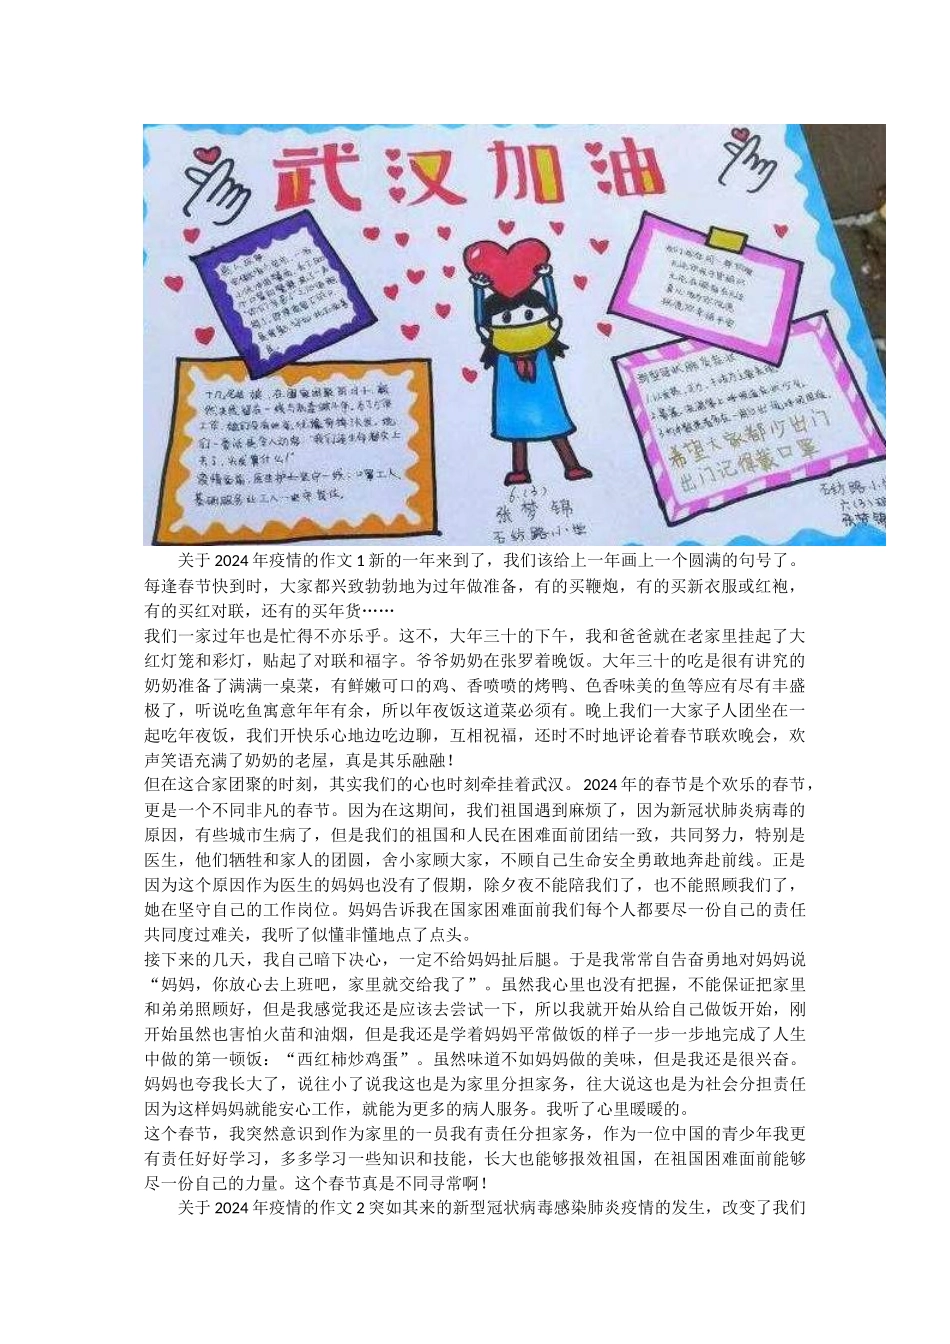 武汉加油
希望大家都少出门
出门记得戴口罩
6.(3)
张梦锦
石纺路小学
石纺路小学
六(3)班
张梦锦
关于 2024 年疫情的作文 1 新的一年来到了，我们该给上一年画上一个圆满的句号了。
每逢春节快到时，大家都兴致勃勃地为过年做准备，有的买鞭炮，有的买新衣服或红袍，
有的买红对联，还有的买年货……
我们一家过年也是忙得不亦乐乎。这不，大年三十的下午，我和爸爸就在老家里挂起了大
红灯笼和彩灯，贴起了对联和福字。爷爷奶奶在张罗着晚饭。大年三十的吃是很有讲究的
奶奶准备了满满一桌菜，有鲜嫩可口的鸡、香喷喷的烤鸭、色香味美的鱼等应有尽有丰盛
极了，听说吃鱼寓意年年有余，所以年夜饭这道菜必须有。晚上我们一大家子人团坐在一
起吃年夜饭，我们开快乐心地边吃边聊，互相祝福，还时不时地评论着春节联欢晚会，欢
声笑语充满了奶奶的老屋，真是其乐融融！
但在这合家团聚的时刻，其实我们的心也时刻牵挂着武汉。2024 年的春节是个欢乐的春节，
更是一个不同非凡的春节。因为在这期间，我们祖国遇到麻烦了，因为新冠状肺炎病毒的
原因，有些城市生病了，但是我们的祖国和人民在困难面前团结一致，共同努力，特别是
医生，他们牺牲和家人的团圆，舍小家顾大家，不顾自己生命安全勇敢地奔赴前线。正是
因为这个原因作为医生的妈妈也没有了假期，除夕夜不能陪我们了，也不能照顾我们了，
她在坚守自己的工作岗位。妈妈告诉我在国家困难面前我们每个人都要尽一份自己的责任
共同度过难关，我听了似懂非懂地点了点头。
接下来的几天，我自己暗下决心，一定不给妈妈扯后腿。于是我常常自告奋勇地对妈妈说
“妈妈，你放心去上班吧，家里就交给我了”。虽然我心里也没有把握，不能保证把家里
和弟弟照顾好，但是我感觉我还是应该去尝试一下，所以我就开始从给自己做饭开始，刚
开始虽然也害怕火苗和油烟，但是我还是学着妈妈平常做饭的样子一步一步地完成了人生
中做的第一顿饭：“西红柿炒鸡蛋”。虽然味道不如妈妈做的美味，但是我还是很兴奋。
妈妈也夸我长大了，说往小了说我这也是为家里分担家务，往大说这也是为社会分担责任
因为这样妈妈就能安心工作，就能为更多的病人服务。我听了心里暖暖的。
这个春节，我突然意识到作为家里的一员我有责任分担家务，作为一位中国的青少年我更
有责任好好学习，多多学习一些知识和技能，长大也能够报效祖国，在祖国困难面前能够
尽一份自己的力量。这个春节真是不同寻常啊！
关于 2024 年疫情的作文 2 突如其来的新型冠状病毒感染肺炎疫情的发生，改变了我们